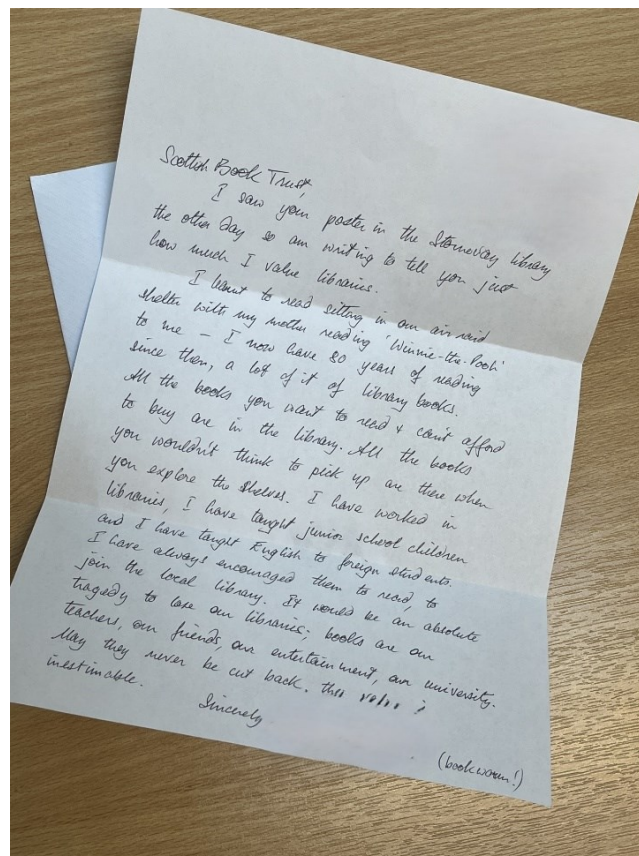 Scottish Book Trust,
I saw your poster in the Stornoway library
the other day so am writing to tell you just
how much I value libraries.
I learnt to read sitting in our air raid
shelter with my mother reading 'Winnie-the-Pooh'
to me – I now have 80 years of reading
since then, a lot of it of library books.
All the books you want to read & can't afford
to buy are in the library. All the books
you wouldn't think to pick up are there when
you explore the shelves. I have worked in
libraries, I have taught junior school children
and I have taught English to foreign students.
I have always encouraged them to read, to
join the local library. It would be an absolute
tragedy to lose our libraries; books are our
teachers, our friends, our entertainment, our university.
May they never be cut back.
inestimable.
Sincerely
(bookworm!)